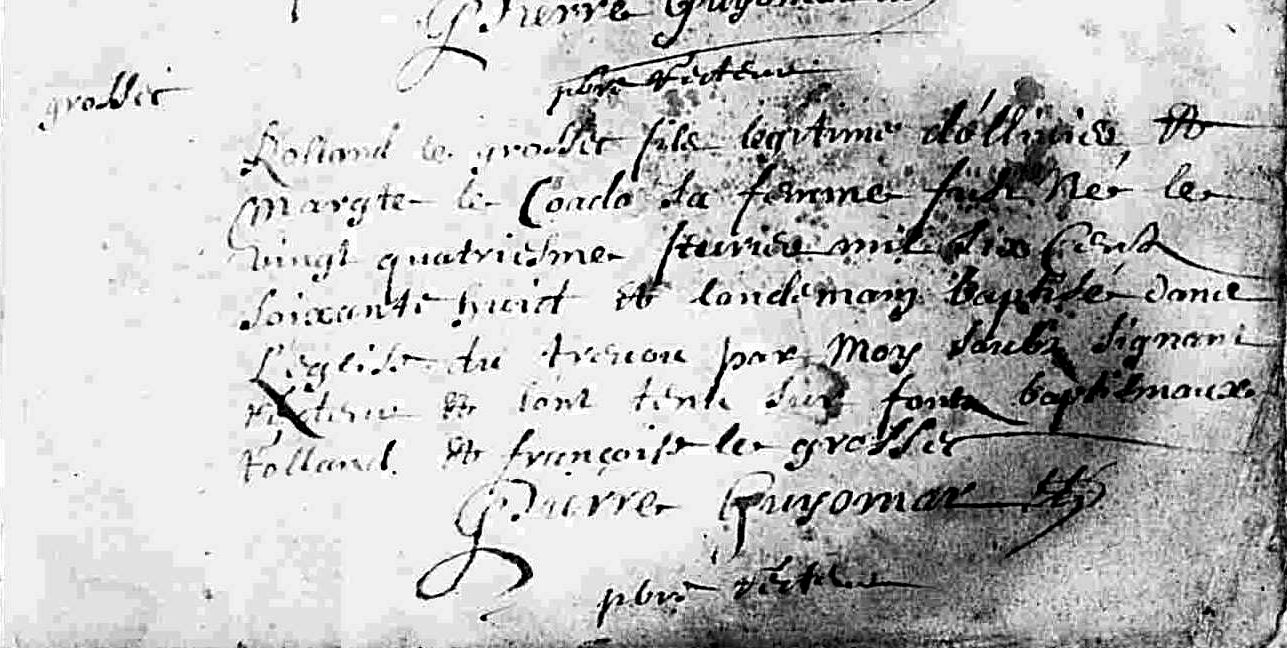 Pierre Guyomar
pbre recteur
grossec
Rolland le grossec fils legitime d'ollivier &
Margte le Coado sa femme fust Né le
vingt quatriesme feuvrier mil six cent
soixante huict & landemain baptisé dans
L'eglise du treuou par Moy soubs signant
recteur & l'ont tenu sur fonts baptismaux
Rolland & françoise le grossec
Pierre Guyomar
pbre recteur